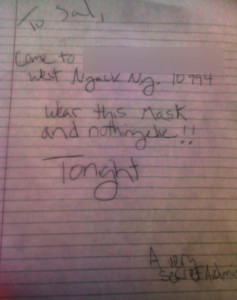 To Sal,
Come to
West Nyack Ny. 10994
Wear this Mask
and nothing else!!
Tonight
A very
secret Admi